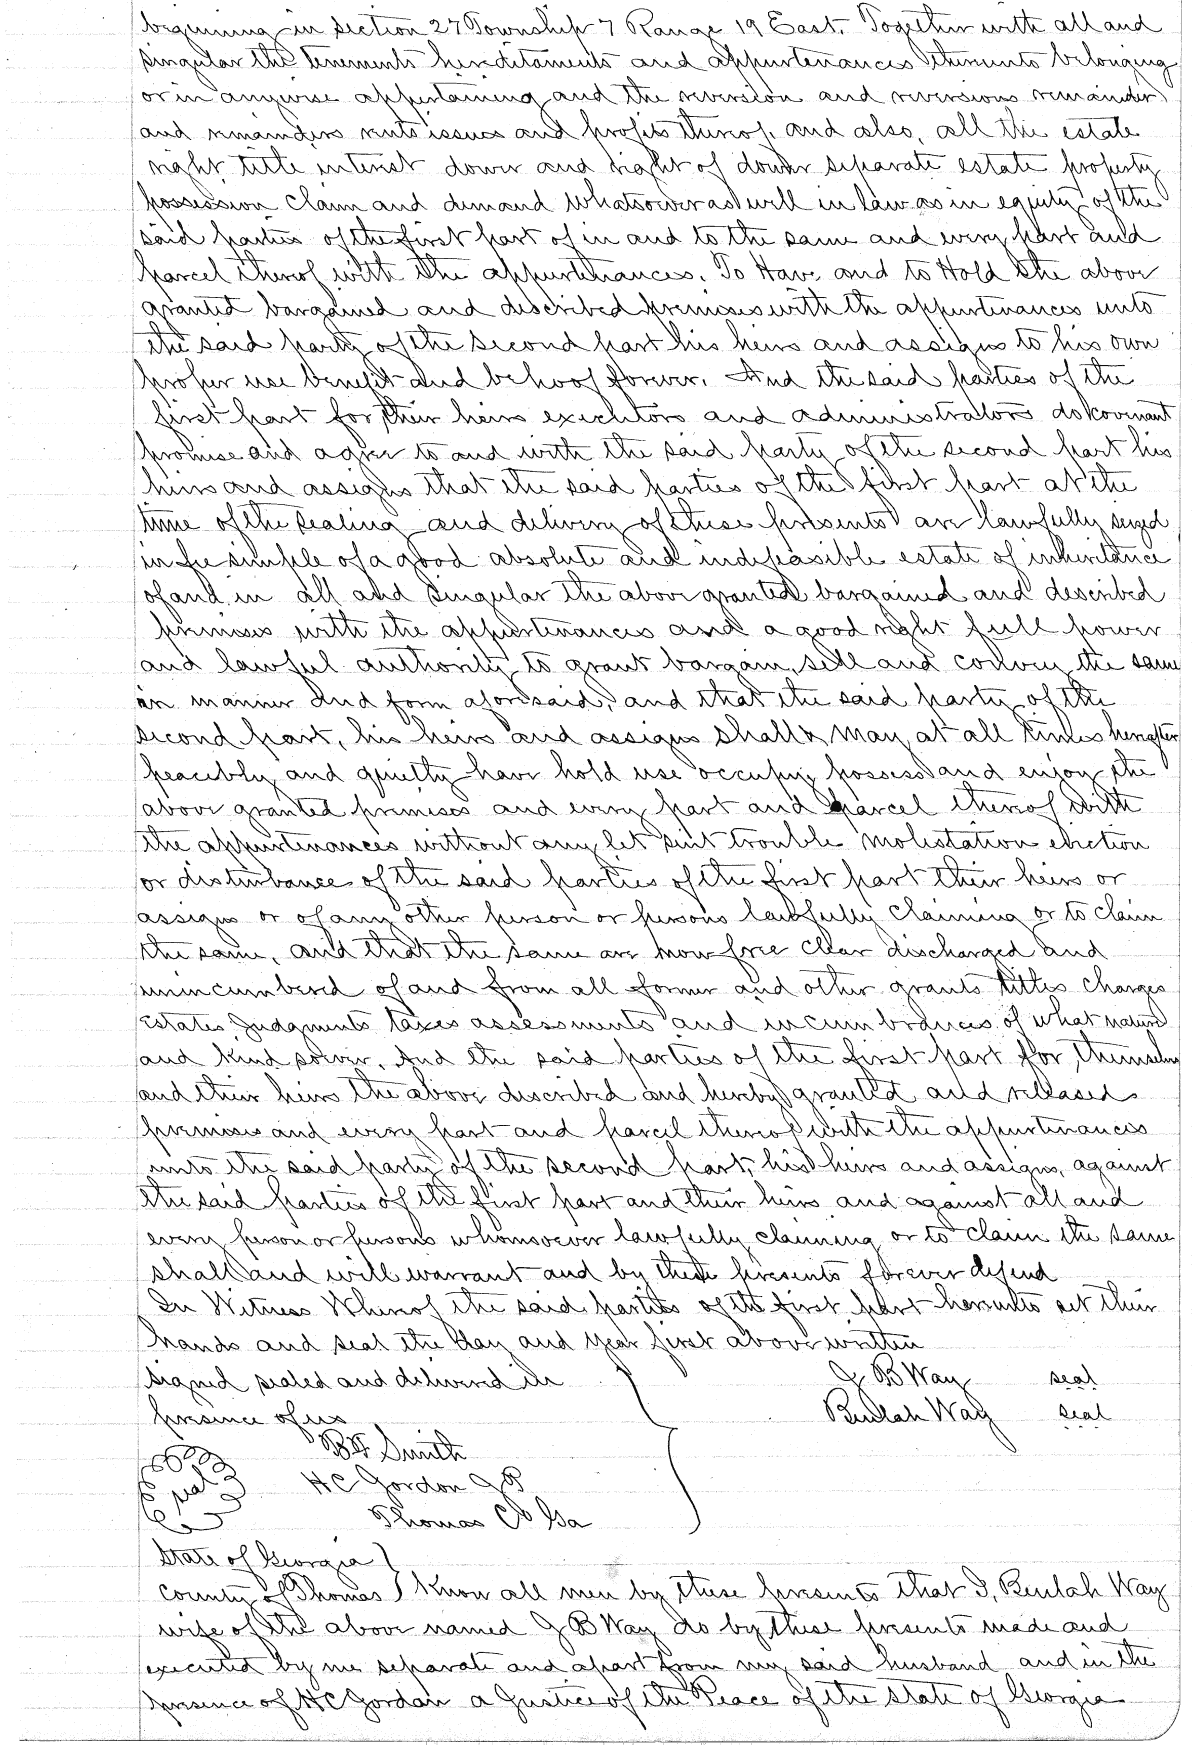 beginning in section 27 Township 7 Range 19 East. Together with all and
singular the tenements hereditaments and appurtenances thereunto belonging
or in anywise appertaining and the reversion and reversions remainder
and remainders rents issues and profits thereof, and also, all the estate
right title interest dower and right of dower separate estate property
possession claim and demand whatsoever as well in law as in equity of the
said parties of the first part of in and to the same and every part and
parcel thereof with the appurtenances. To Have and to Hold the above
granted bargained and described premises with the appurtenances unto
the said party of the second part his heirs and assigns to his own
proper use benefit and behoof forever. And the said parties of the
first part for their heirs executors and administrators do covenant
promise and agree to and with the said party of the second part his
heirs and assigns that the said parties of the first part at the
time of the sealing and delivery of these presents are lawfully seized
in fee simple of a good absolute and indefeasible estate of inheritance
of and in all and singular the above granted bargained and described
premises with the appurtenances and a good right full power
and lawful authority to grant bargain, sell and convey the same
in manner and form aforesaid, and that the said party of the
second part, his heirs and assigns shall & may at all times hereafter
peacibly and quietly have hold use occupy possess and enjoy the
above granted premises and every part and parcel thereof with
the appurtenances without any let suit trouble molestation eviction
or disturbance of the said parties of the first part their heirs or
assigns or of any other person or persons lawfully claiming or to claim
the same, and that the same are now free clear discharged and
unincumbered of and from all former and other grants titles charges
estates Judgments taxes assessments and incumbrances of what nature
and kind soever. And the said parties of the first part for themselves
and their heirs the above described and hereby granted and released
premises and every part and parcel thereof with the appurtenances
unto the said party of the second part, his heirs and assigns, against
the said parties of the first part and their heirs and against all and
every person or persons whomsoever lawfully claiming or to claim the same
shall and will warrant and by these presents forever defend
In Witness Whereof the said parties of the first part hereunto set their
hands and seal the day and year first above written
signed sealed and delivered in J B Way seal
presence of us Beulah Way seal
B H Smith
seal H C Gordon J P
Thomas Co Ga
State of Georgia
County of Thomas Know all men by these presents that I, Beulah Way
wife of the above named J B Way do by these presents made and
executed by me separate and apart from my said husband and in the
presence of H C Gordan a Justice of the Peace of the State of Georgia